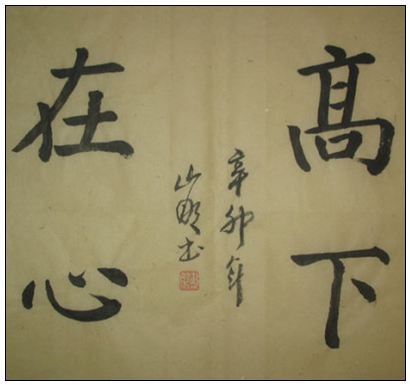 髙下
在心
辛卯年
山书